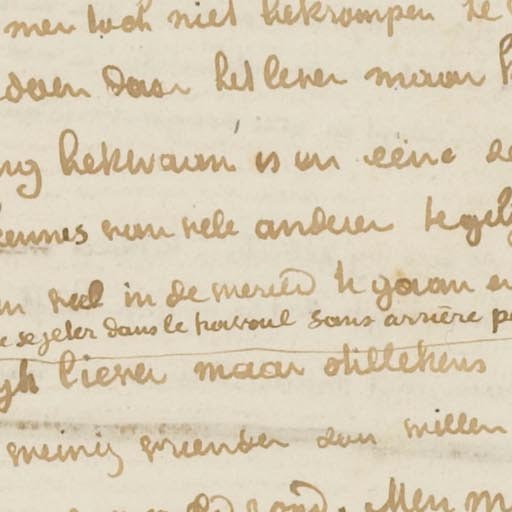 men toch niet bekrompen te
doen daar het leven maar
ing bekwaam is in eene
kennis van vele anderen te
veel in de wereld te gaan en
se jeter dans le travail sans arrière
liever maar stilletekens
weinig vrienden dan willen
Men